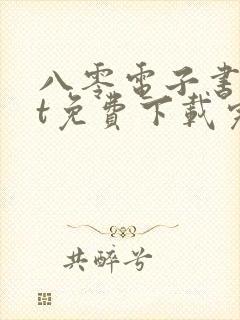 八零電子書
t免費下載完
共醉兮